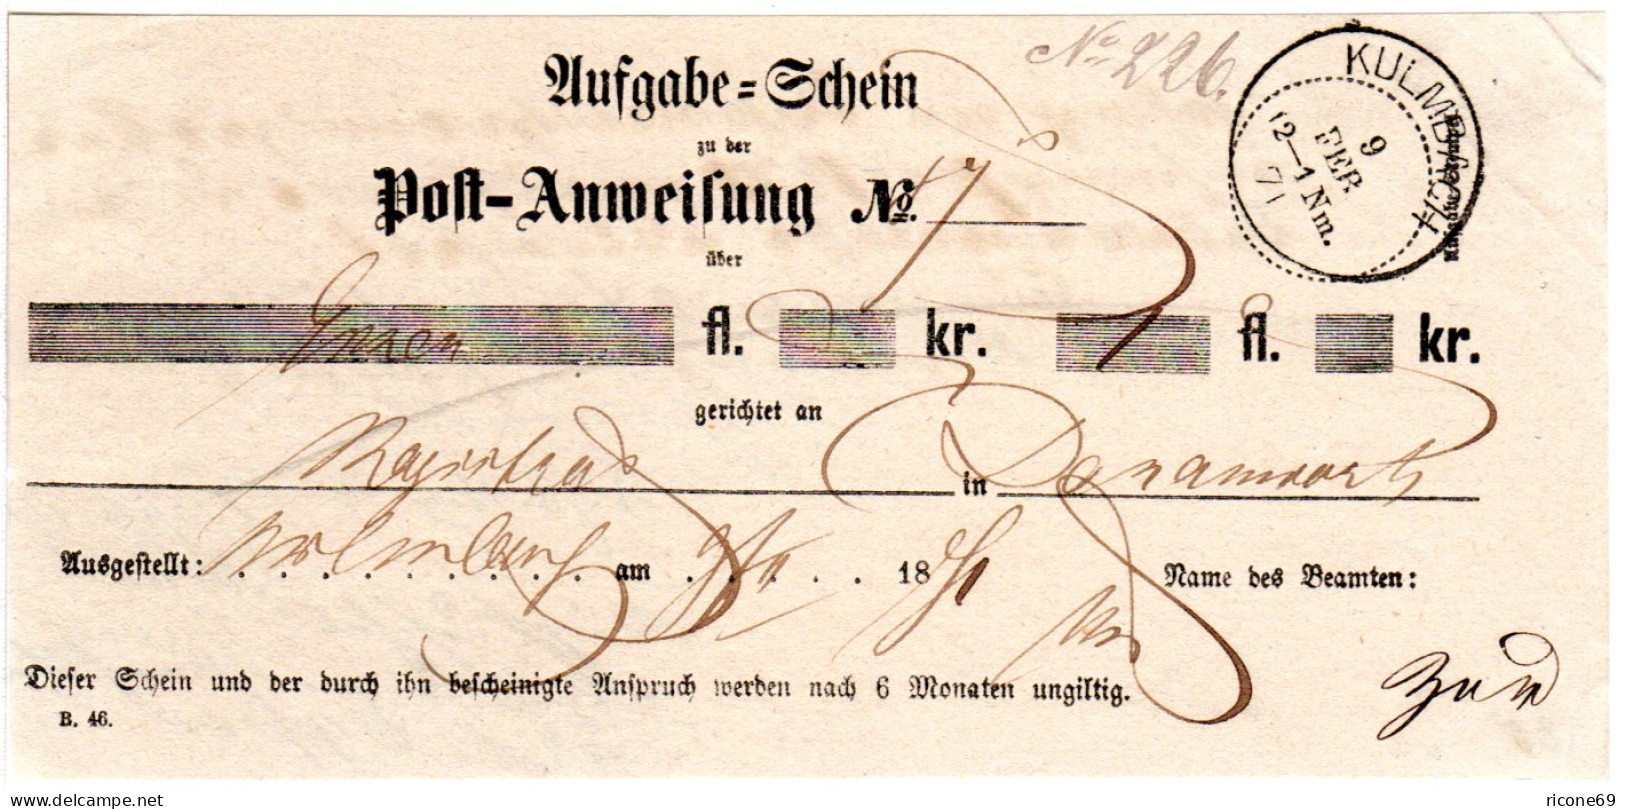 No 226.
Aufgabe=Schein
zu der
Post-Anweisung No.
über
Einen fl. kr. 1 fl. kr.
gerichtet an
Magistrat in Donauwörth
Ausgestellt: Kulmbach am 9/2 1871 Name des Beamten:
Dieser Schein und der durch ihn bescheinigte Anspruch werden nach 6 Monaten ungiltig.
B. 46.
KULMBACH
9
FEB
12—1 Nm.
71
ricone69